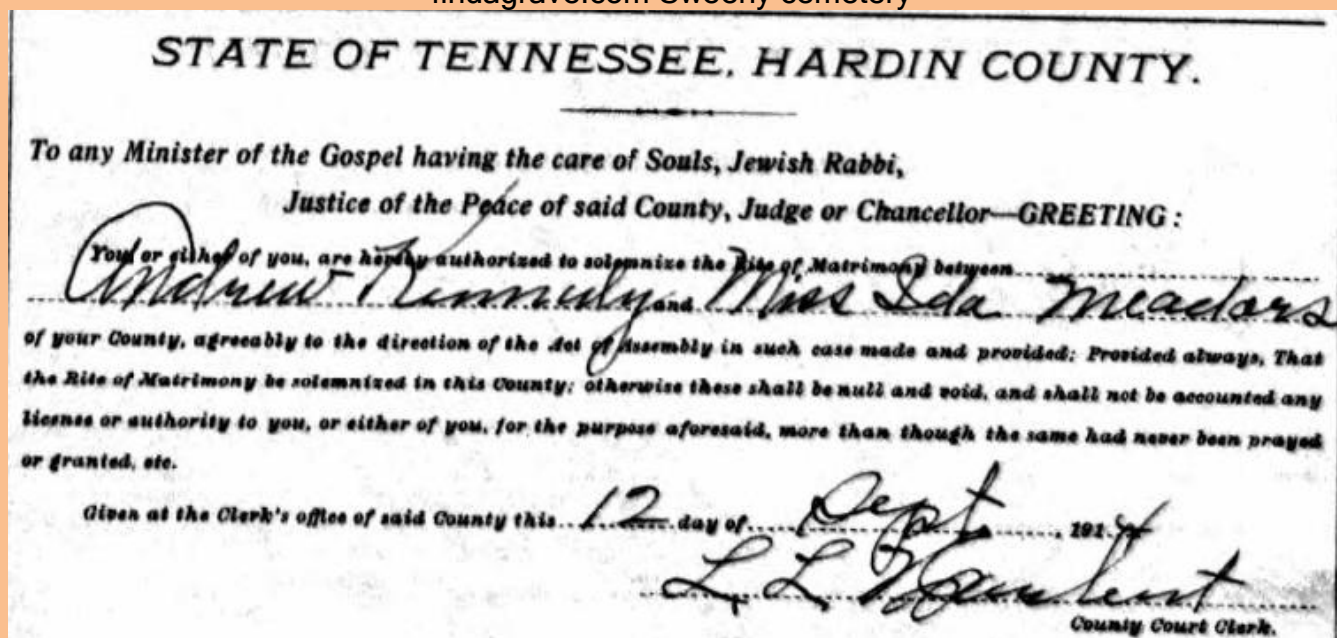 findagrave.com Sweeny cemetery
STATE OF TENNESSEE, HARDIN COUNTY.
To any Minister of the Gospel having the care of Souls, Jewish Rabbi,
Justice of the Peace of said County, Judge or Chancellor—GREETING:
You or either of you, are hereby authorized to solemnize the Rite of Matrimony between
Andrew Kennedy and Miss Ida Meadors
of your County, agreeably to the direction of the Act of Assembly in such case made and provided; Provided always, That
the Rite of Matrimony be solemnized in this County; otherwise these shall be null and void, and shall not be accounted any
license or authority to you, or either of you, for the purpose aforesaid, more than though the same had never been prayed
or granted, etc.
Given at the Clerk's office of said County this 12 day of Sept, 1914
L. L.
County Court Clerk.